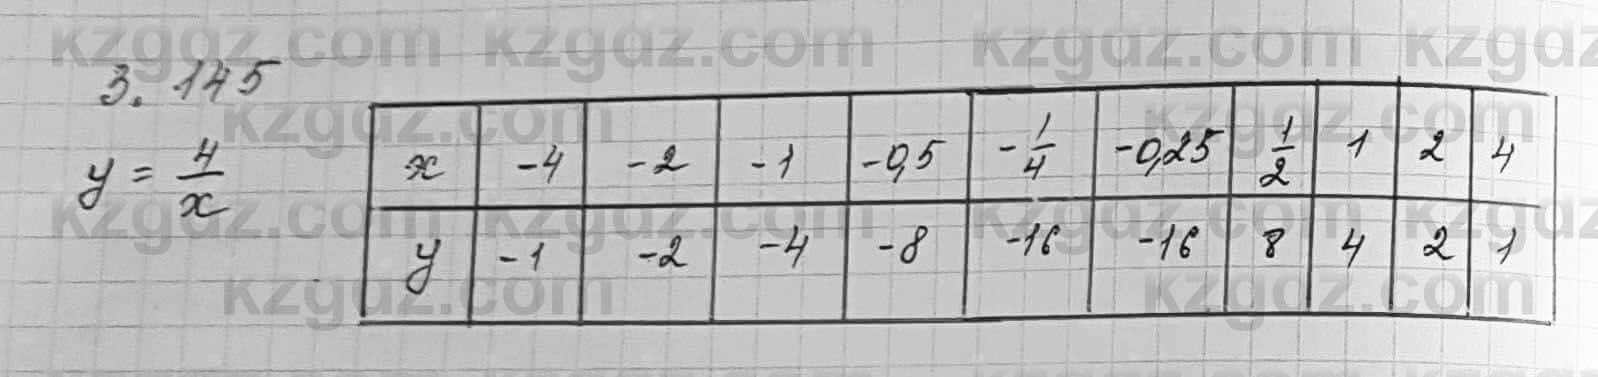 kzgdz.com kzgdz.com kzgdz.com kzgdz
3. 145
kzgdz.com kzgdz.com
y = 4/x
x -4 -2 -1 -0,5 -1/4 -0,25 1/2 1 2 4
kzgdz.com kzgdz.com kzgdz.com kzgdz
y -1 -2 -4 -8 -16 -16 8 4 2 1
kzgdz.com kzgdz.com